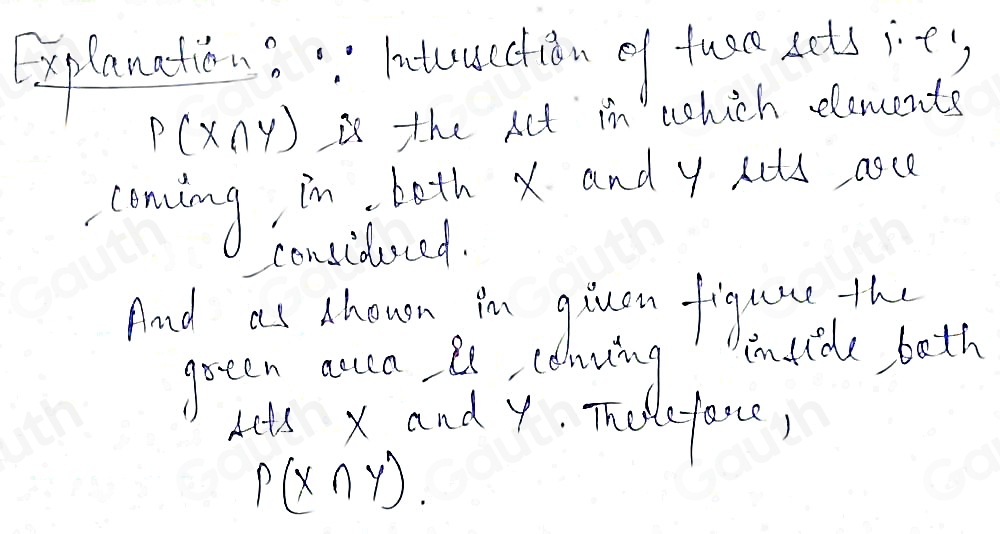 Explanation: ∵ Intersection of two sets i.e.,
P(X∩Y) is the set in which elements
coming in both X and Y sets are
considered.
And as shown in given figure the
green area is coming inside both
sets X and Y. Therefore,
P(X∩Y).